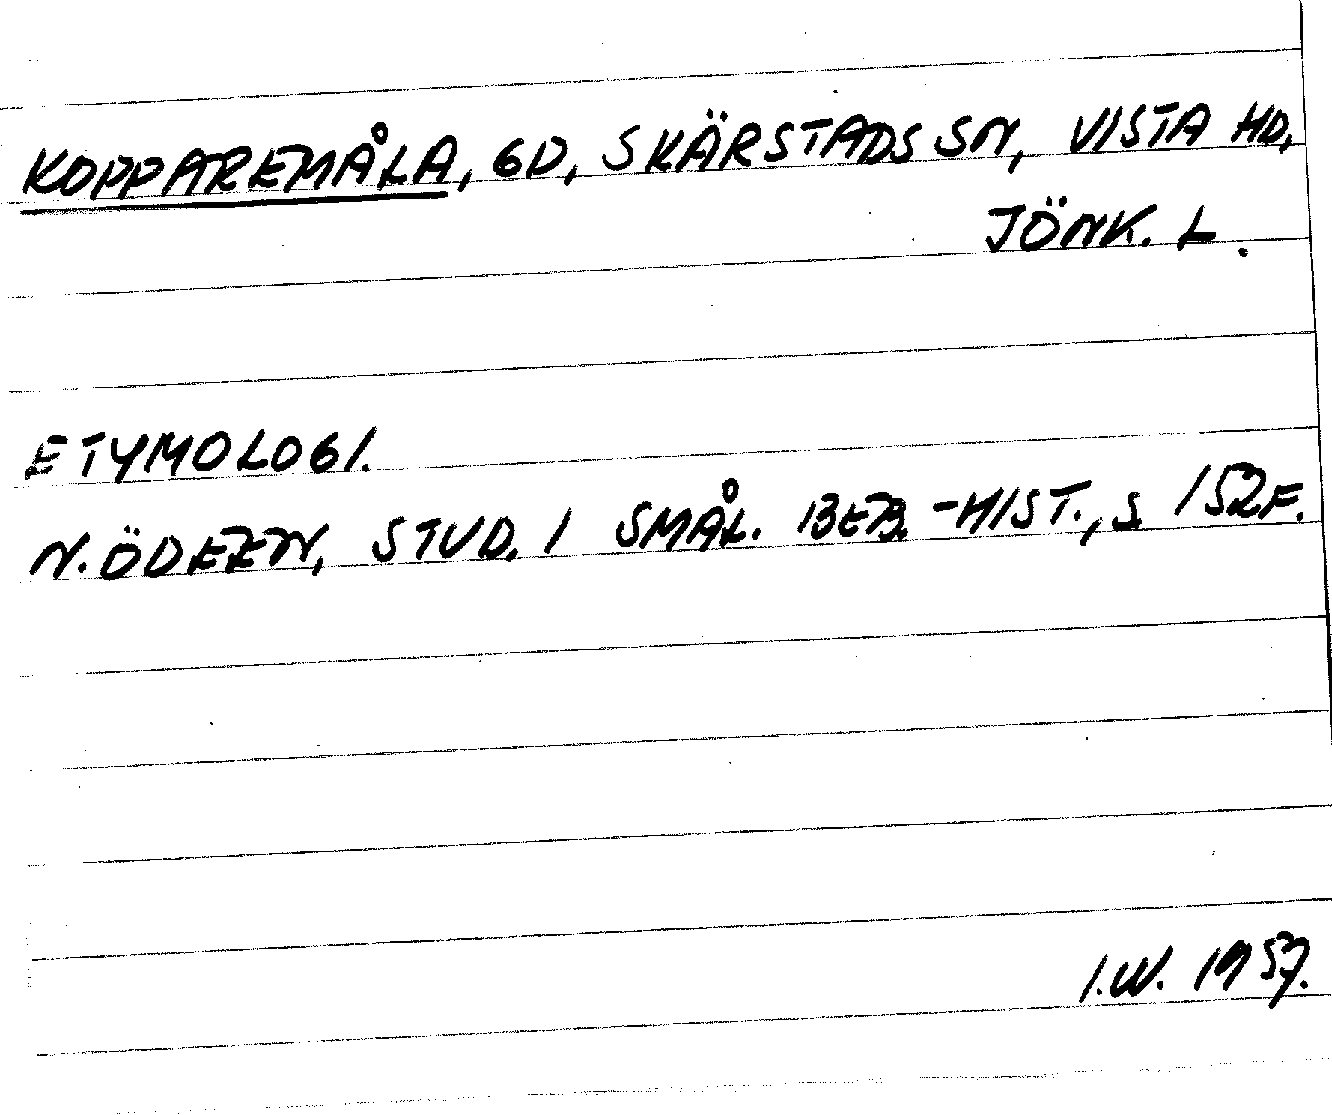 KOPPAREMÅLA, GD, SKÄRSTADS SN, VISTA HD,
JÖNK. L.
ETYMOLOGI.
N. ÖDEEN, STUD. I SMÅL. BEB.-HIST., S. 152F.
I.W. 1957.